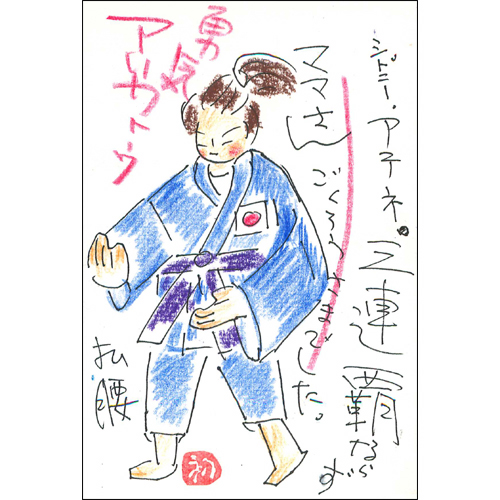 シドニー・アテネ。三連覇ならず
ママさん
ごくろうさまでした。
勇気
アリガトウ
払腰
初